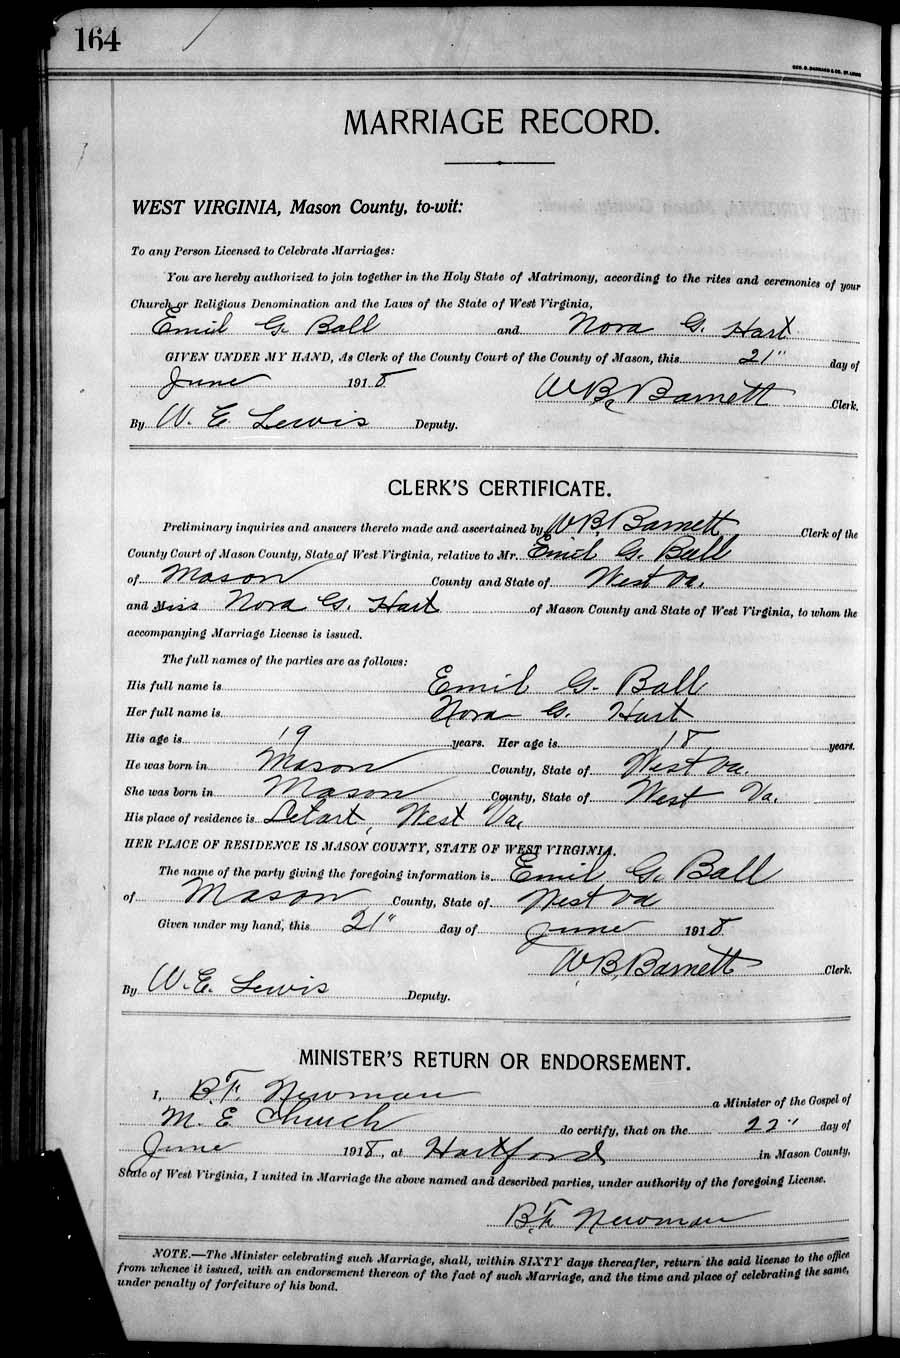 164
GEO. D. BARNARD & CO. ST. LOUIS
MARRIAGE RECORD.
WEST VIRGINIA, Mason County, to-wit:
To any Person Licensed to Celebrate Marriages:
You are hereby authorized to join together in the Holy State of Matrimony, according to the rites and ceremonies of your
Church or Religious Denomination and the Laws of the State of West Virginia,
Emil G. Ball and Nora G. Hart
GIVEN UNDER MY HAND, As Clerk of the County Court of the County of Mason, this 21" day of
June 1918 W B, Barnett Clerk.
By W. E. Lewis Deputy.
CLERK'S CERTIFICATE.
Preliminary inquiries and answers thereto made and ascertained by W B, Barnett Clerk of the
County Court of Mason County, State of West Virginia, relative to Mr. Emil G. Ball
of Mason County and State of West Va.
and Miss Nora G. Hart of Mason County and State of West Virginia, to whom the
accompanying Marriage License is issued.
The full names of the parties are as follows:
His full name is Emil G. Ball
Her full name is Nora G. Hart
His age is 19 years. Her age is 18 years.
He was born in Mason County, State of West Va.
She was born in Mason County, State of West Va.
His place of residence is Letart, West Va,
HER PLACE OF RESIDENCE IS MASON COUNTY, STATE OF WEST VIRGINIA.
The name of the party giving the foregoing information is Emil G. Ball
of Mason County, State of West Va
Given under my hand, this 21" day of June 1918
W, B, Barnett Clerk.
By W. E. Lewis Deputy.
MINISTER'S RETURN OR ENDORSEMENT.
I, B.F. Newman a Minister of the Gospel of
M. E Church do certify, that on the 22" day of
June 1918, at Hartford in Mason County,
State of West Virginia, I united in Marriage the above named and described parties, under authority of the foregoing License.
B.F. Newman
NOTE.—The Minister celebrating such Marriage, shall, within SIXTY days thereafter, return the said license to the office
from whence it issued, with an endorsement thereon of the fact of such Marriage, and the time and place of celebrating the same,
under penalty of forfeiture of his bond.